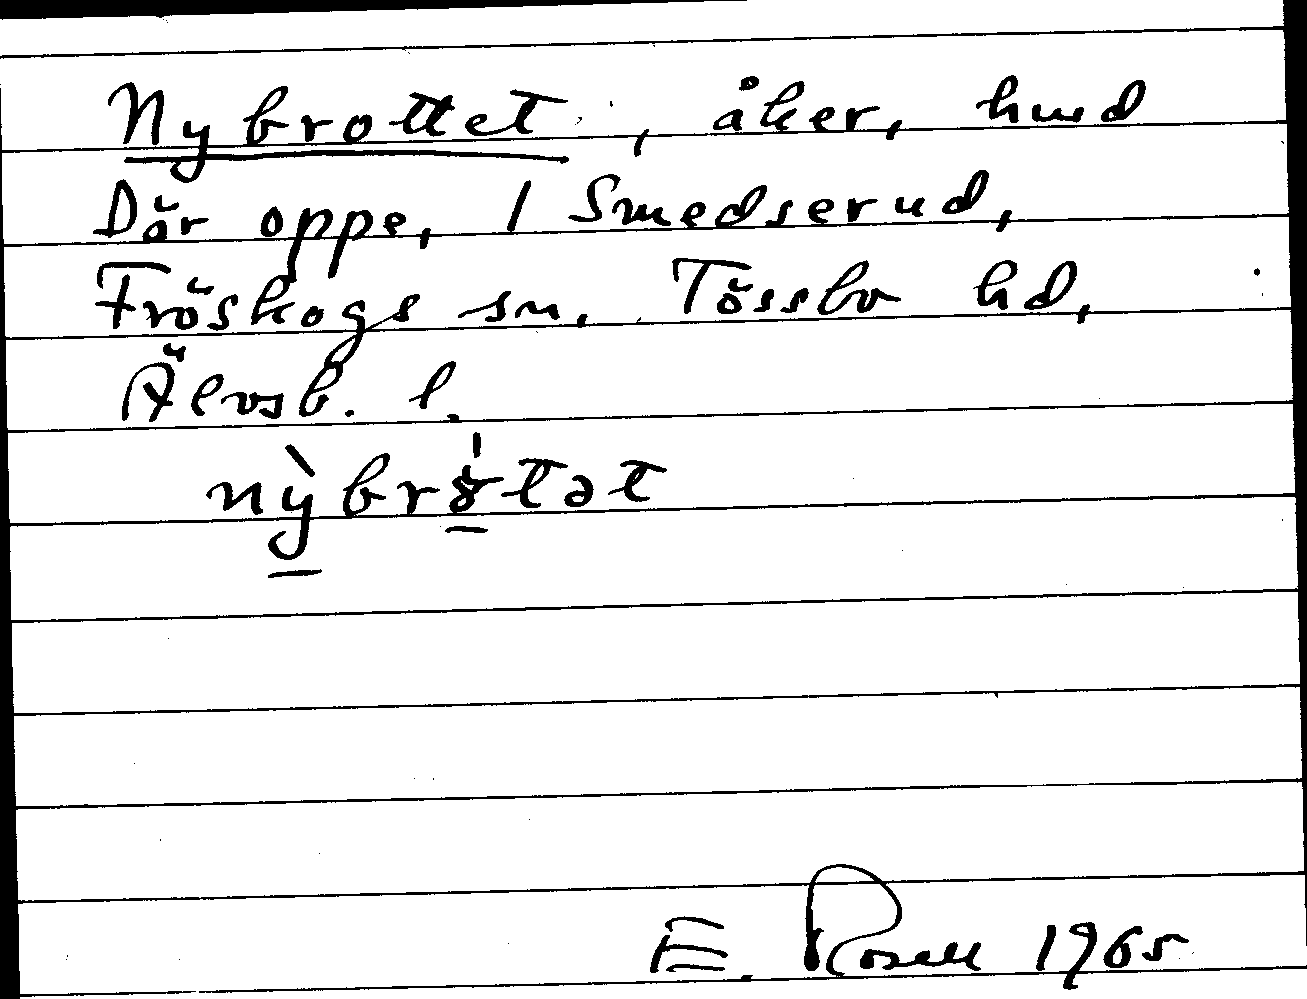 Nybrottet, åker, hmd
Där oppe, 1 Smedserud,
Fröskogs sn. Tössbo hd,
Älvsb. l.
nỳbrotət
E. Rosell 1965